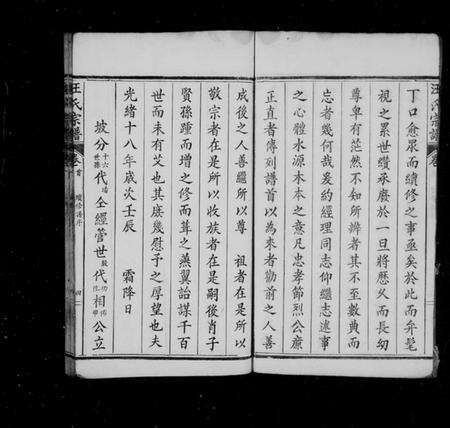 丁口愈眾而續修之事亟矣於此而弁髦
視之累世纘承廢於一旦將歷久而長幼
尊卑有茫然不知所辨者其不至數典而
忘者幾何哉爰約經理同志仰繼志述事
之心體水源木本之意凡忠孝節烈公廉
正直者傳列譜首以為來者勸前之人善
成後之人善繼所以尊 祖者在是所以
敬宗者在是所以收族者在是嗣後肖子
賢孫踵而增之修而葺之燕翼詒謀千百
世而未有艾也其庶幾慰予之厚望也夫
光緒十八年歲次壬辰 霜降日
坡分十六世孫代 全經管世 代 相 公立
汪氏宗譜 卷首 續修譜序 四
汪氏宗譜 卷